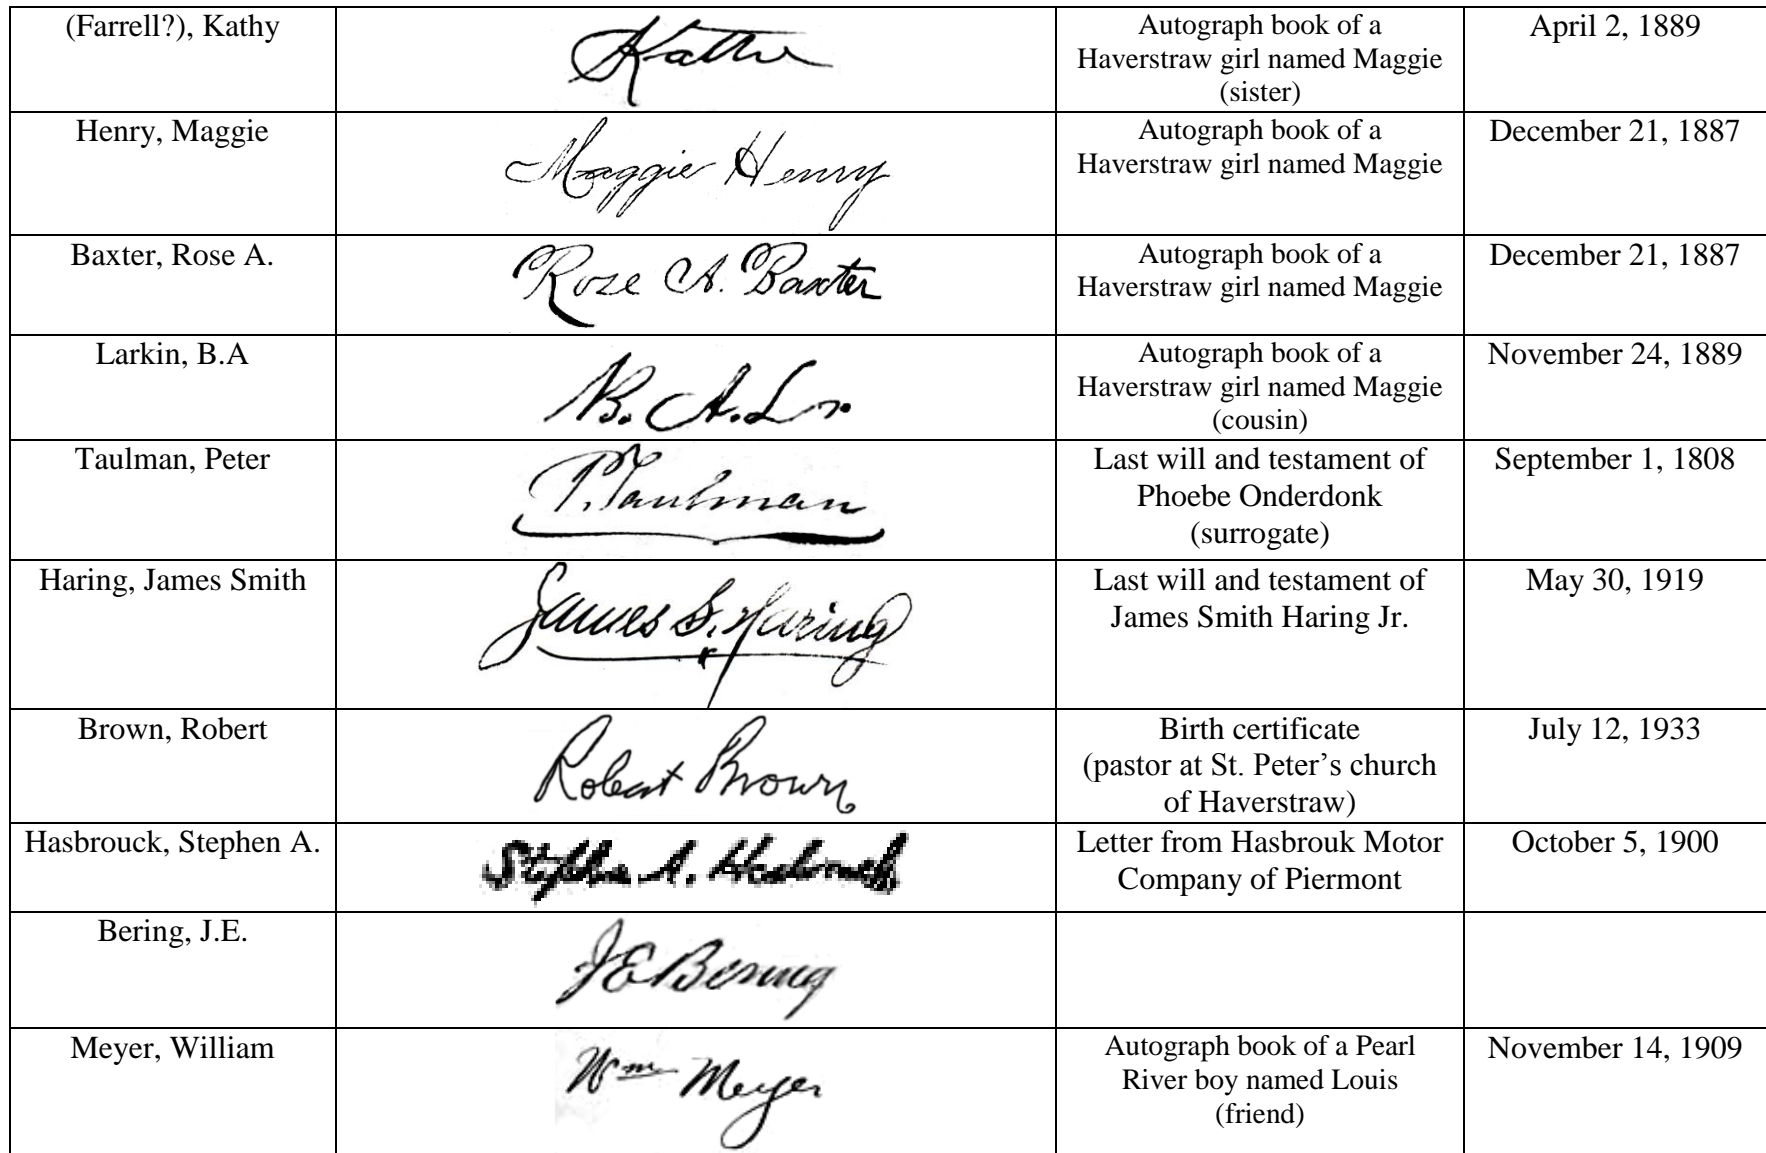 (Farrell?), Kathy
Kathy
Autograph book of a
Haverstraw girl named Maggie
(sister)
April 2, 1889
Henry, Maggie
Maggie Henry
Autograph book of a
Haverstraw girl named Maggie
December 21, 1887
Baxter, Rose A.
Rose A. Baxter
Autograph book of a
Haverstraw girl named Maggie
December 21, 1887
Larkin, B.A
B. A. L n.
Autograph book of a
Haverstraw girl named Maggie
(cousin)
November 24, 1889
Taulman, Peter
P. Taulman
Last will and testament of
Phoebe Onderdonk
(surrogate)
September 1, 1808
Haring, James Smith
James S. Haring
Last will and testament of
James Smith Haring Jr.
May 30, 1919
Brown, Robert
Robert Brown
Birth certificate
(pastor at St. Peter’s church
of Haverstraw)
July 12, 1933
Hasbrouck, Stephen A.
Stephen A. Hasbrouck
Letter from Hasbrouk Motor
Company of Piermont
October 5, 1900
Bering, J.E.
J E Bering
Meyer, William
Wm Meyer
Autograph book of a Pearl
River boy named Louis
(friend)
November 14, 1909